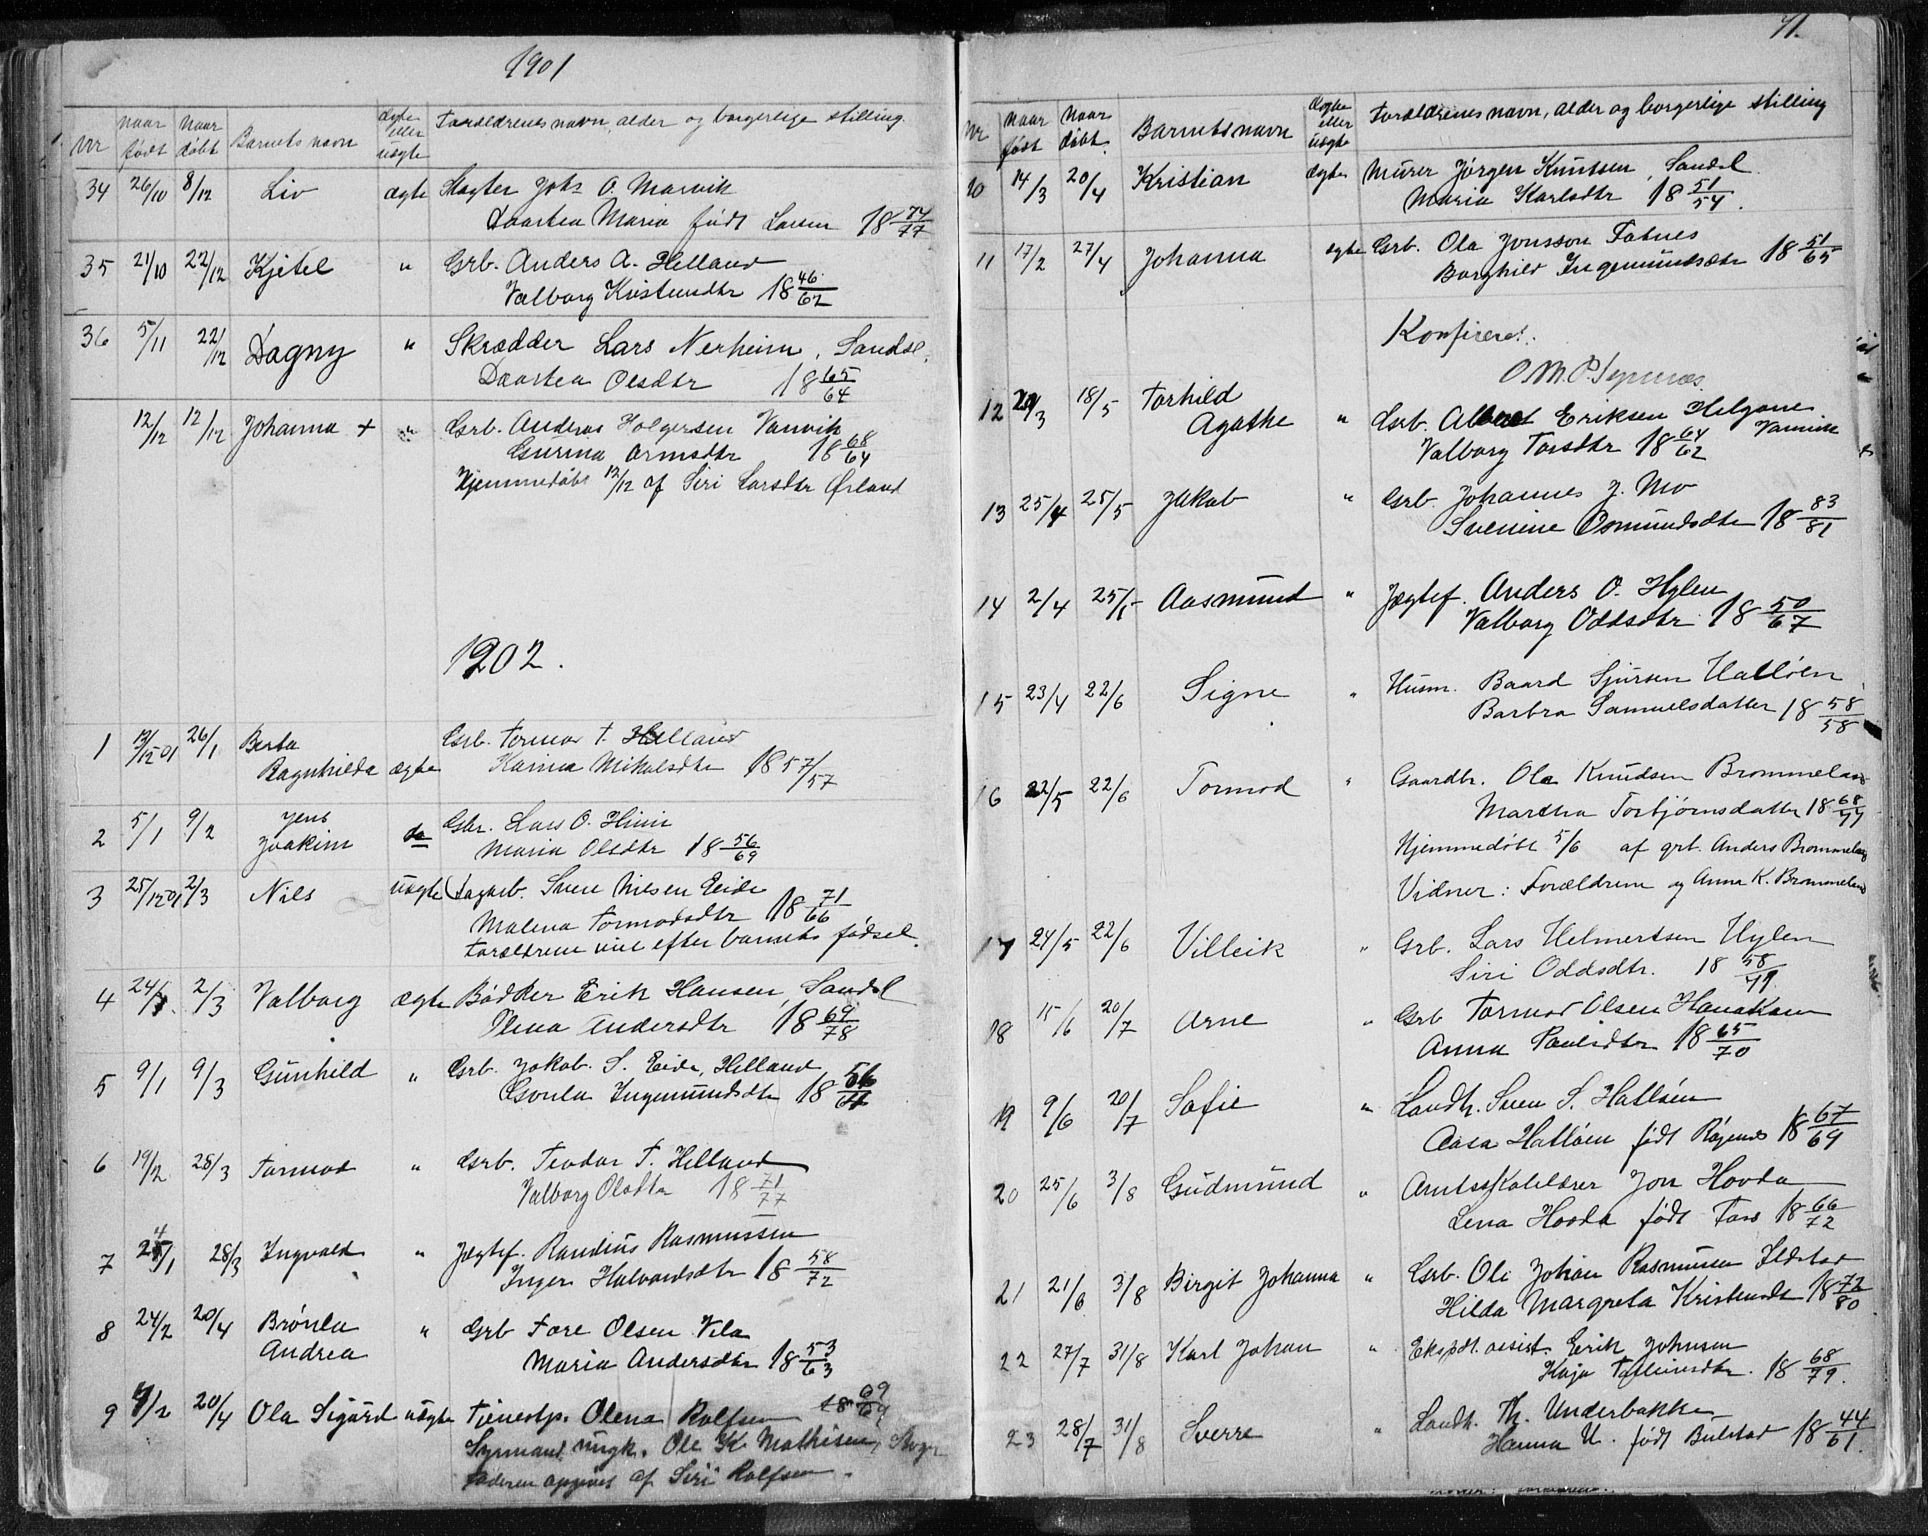 1901
Nr naar født Naar døbt Barnets navn ægte eller uægte Forældrenes navn, alder og borgerlige stilling.
34 26/10 8/12 Liv ægte Slagter Johs O. Marvik
Daartea Maria født Larsen 18 74/77
35 21/10 22/12 Kjetel " Grb. Anders A. Helland
Valborg Kristendtr 18 46/62
36 5/11 22/12 Dagny " Skrædder Lars Nerheim, Sandsl.
Daartea Olsdtr 18 65/64
12/12 12/12 Johanna + " Grb. Andreas Holgersen Vanvik
Gurina Ormsdtr 18 68/64
Hjemmedøbt 12/12 af Siri Larsdtr Ørland
1902.
1 12/12 01 26/1 Berta Grb. Tormod T. Helland
Ragnhilda ægte Karina Mikalsdtr 18 57/57
2 5/1 9/2 Jens Gbr. Lars O. Hiim
Joakim do Maria Olsdtr 18 56/69
3 25/12 01 2/3 Nils uægte Dagarb. Sven Nilsen Eide
Malena Tormodsdtr 18 71/66
Forældrene viet efter barnets fødsel.
4 24/1 2/3 Valborg ægte Bødker Erik Hansen, Sandsl
Elena Andersdtr 18 69/78
5 9/1 9/3 Gunhild " Grb. Jakob S. Eide, Helland
Gonla Ingemundsdtr 18 56/64
6 19/2 28/3 Tormod " Grb. Teodor T. Helland
Valborg Olsdtr 18 71/77
7 24/1 28/3 Ingvald " Jægtef. Randius Rasmussen
Inger Halvardsdtr 18 58/72
8 24/2 20/4 Brønla " Grb Tore Olsen Vela
Andrea Maria Andersdtr 18 53/63
9 4/2 20/4 Ola Sigurd uægte Tjenestp. Olena Rolfsen 18 69/64
Sømand, ungk. Ole K. Mathisen,
faderen opgivet af Siri Rolfsen.
71.
Nr naar født Naar døbt. Barnets navn ægte eller uægte Forældrenes navn, alder og borgerlige stilling
10 14/3 20/4 Kristian ægte Murer Jørgen Knutsen, Sandsl.
Maria Karlsdtr 18 51/54.
11 17/2 27/4 Johanna ægte Grb. Ola Jonsson Fatnes
Borghild Ingemundsdtr 18 51/65
Konfireret.
12 20/3 18/5 Torhild
Agathe " Grb. Albert Eriksen Helgane. Vanvik
Valborg Torsdtr 18 64/62
13 25/4 25/5 Jakob " Grb. Johannes J. Mo
Svenine Osmundsdtr 18 83/81
14 2/4 25/5 Aasmund " Jægtef. Anders O. Hylen
Valborg Oddsdtr 18 50/67
15 23/4 22/6 Signe " Husm. Baard Sjursen Hatløen
Barbra Samuelsdatter 18 58/58
16 22/5 22/6 Tormod " Gaardbr. Ola Knudsen Brommeland
Martha Torbjørnsdatter 18 68/77
Hjemmedøbt 5/6 af grb. Anders Brommeland
Vidner: Forældrene og Anna K. Brommeland
17 24/5 22/6 Villeik " Grb. Lars Helmertsen Hylen
Siri Oddsdtr. 18 58/71.
18 15/6 20/7 Arne " Grb Tormod Olsen Hanakam
Anna Paulsdtr 18 65/70
19 9/6 20/7 Sofie " Landh. Sven S. Hatløen
Aasa Hatløen født Røgenes 18 67/69
20 25/6 3/8 Gudmund " Amtsskolelærer Jon Hovda
Lena Hovda født Tors 18 66/72
21 21/6 3/8 Birgit Johanna " Grb. Ole Johan Rasmussen Ilstad
Hilda Margreta Kristensdtr 18 72/80
22 27/7 31/8 Karl Johan " Ekspdt. assist. Erik Johnsen
Kaja 18 68/79.
23 28/7 31/8 Sverre " Landh. Th. Underbakke
Hanna U. født Bulstad 18 44/61.